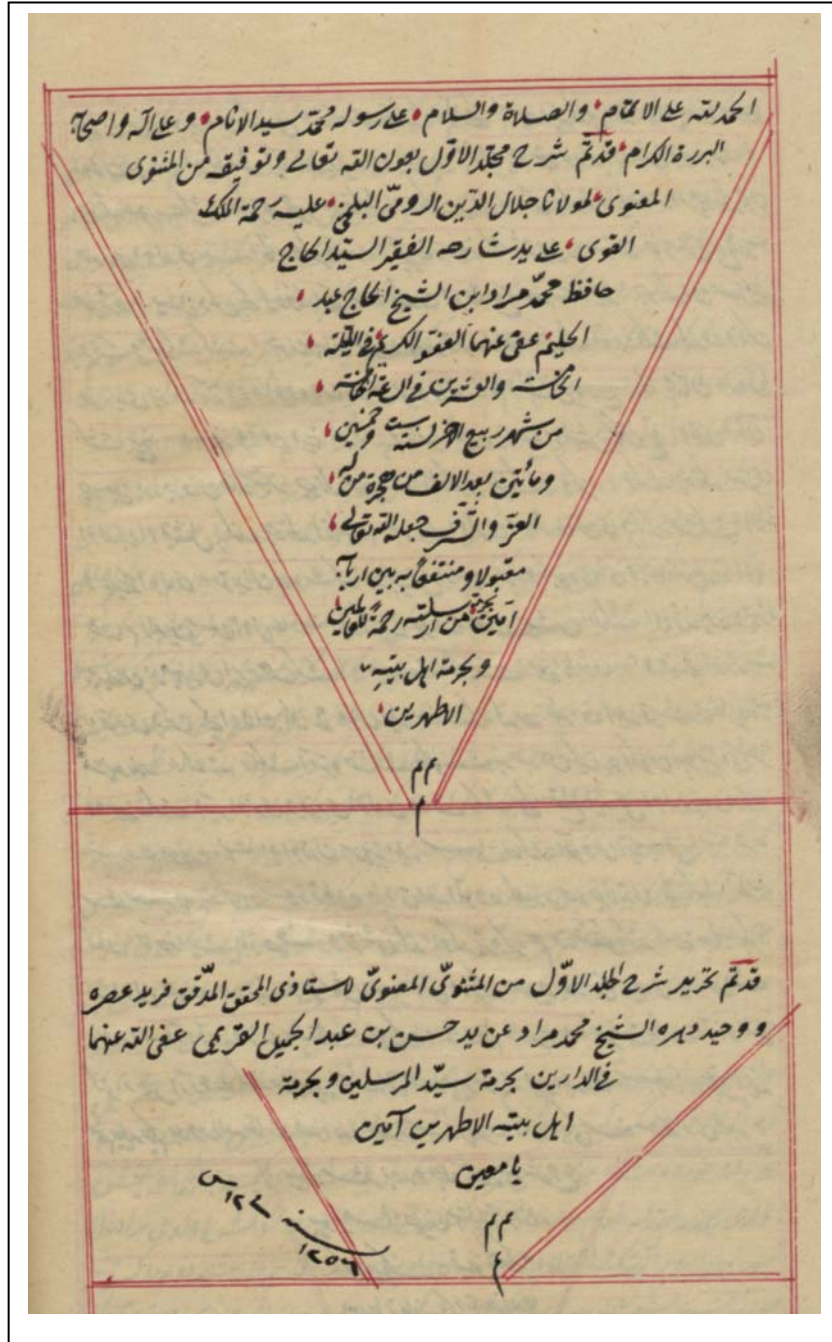 الحمد لله على الاتمام والصلاة والسلام على رسوله محمّد سيد الانام وعلى اله واصحابه
البررة الكرام قد تمّ شرح مجلّد الاوّل بعون الله تعالى وتوفيقه من المثنوى
المعنوى لمولانا جلال الدّين الرومىّ البلخى عليه رحمة الملك
القوى على يد شارحه الفقير السيّد الحاج
حافظ محمّد مراد ابن الشيخ الحاج عبد
الحليم عفى عنهما العفوّ الكريم فى الليلة
الخامسة والعشرين فى الساعة الخامسة
من شهر ربيع الاخر لسنة ست وخمسين
ومأتين بعد الالف من هجرة من له
العزّ والشّرف جعله الله تعالى
مقبولا ومنتفعًا به بين اربابه
آمين بحرمة من ارسلته رحمةً للعالمين
وبحرمة اهل بيته
الاطهرين
م م
م
قد تمّ تحرير شرح الجلد الاوّل من المثنوىّ المعنوىّ لاستاذى المحقق المدّقق فريد عصره
ووحيد دهره الشيخ محمد مراد عن يد حسن بن عبد الجميل القريمى عفى الله عنهما
فى الدارين بحرمة سيّد المرسلين وبحرمة
اهل بيته الاطهرين آمين
يا معين
م م
م
سنه
١٢٥٦